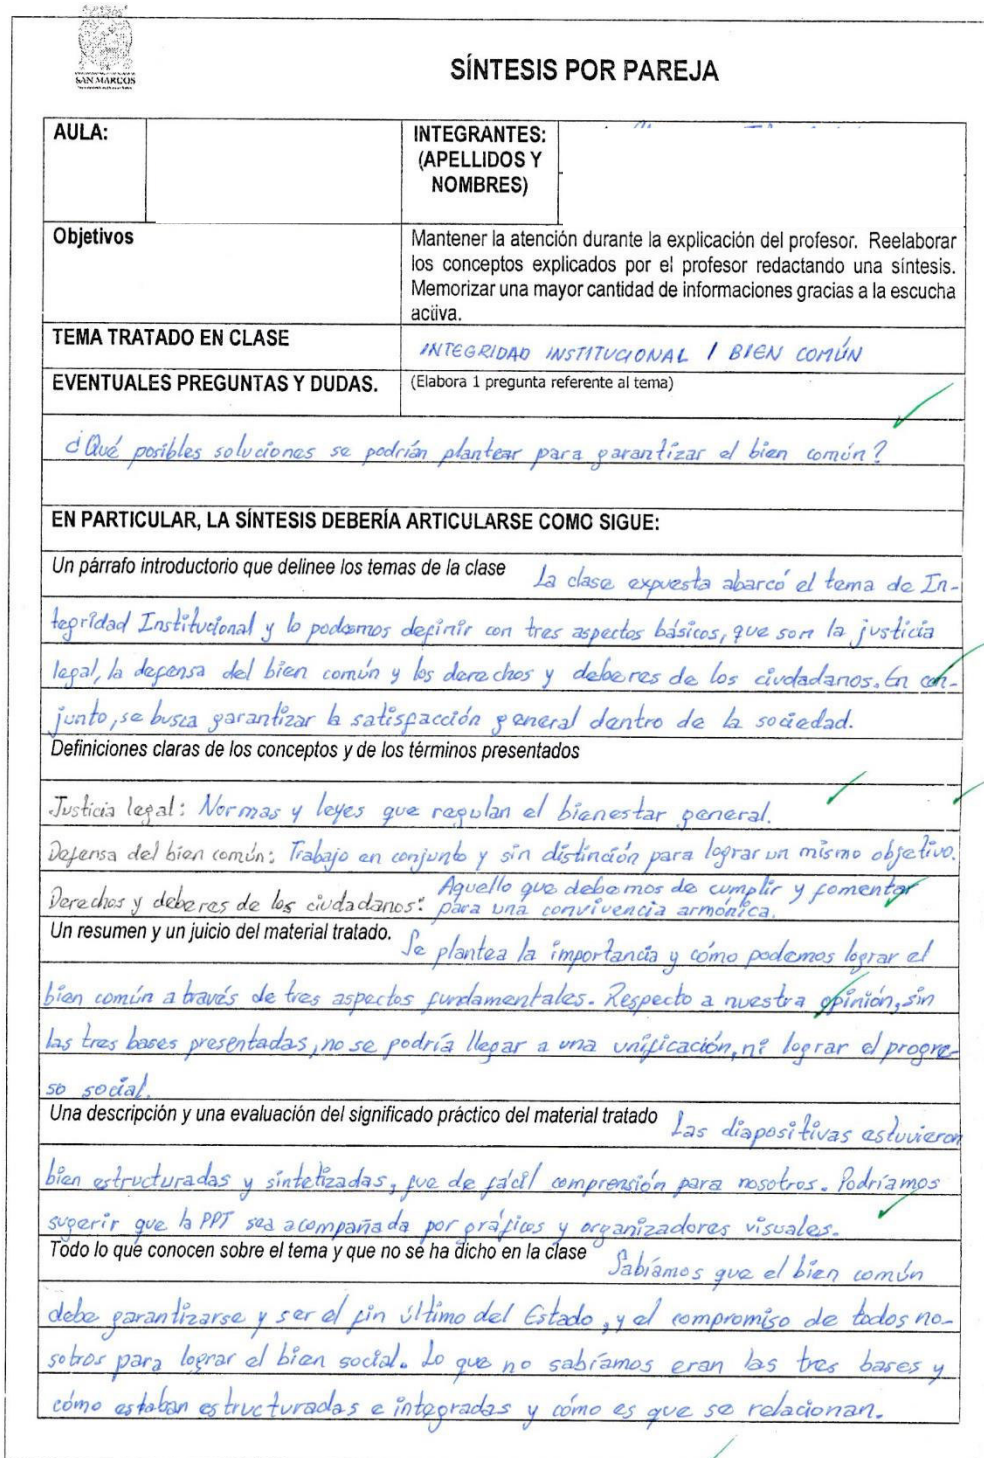 SAN MARCOS
SÍNTESIS POR PAREJA
AULA:
INTEGRANTES:
(APELLIDOS Y
NOMBRES)
Objetivos
Mantener la atención durante la explicación del profesor. Reelaborar
los conceptos explicados por el profesor redactando una síntesis.
Memorizar una mayor cantidad de informaciones gracias a la escucha
activa.
TEMA TRATADO EN CLASE
INTEGRIDAD INSTITUCIONAL / BIEN COMÚN
EVENTUALES PREGUNTAS Y DUDAS.
(Elabora 1 pregunta referente al tema)
¿Qué posibles soluciones se podrían plantear para garantizar el bien común?
EN PARTICULAR, LA SÍNTESIS DEBERÍA ARTICULARSE COMO SIGUE:
Un párrafo introductorio que delinee los temas de la clase La clase expuesta abarcó el tema de In-
tegridad Institucional y lo podemos definir con tres aspectos básicos, que son la justicia
legal, la defensa del bien común y los derechos y deberes de los ciudadanos. En con-
junto, se busca garantizar la satisfacción general dentro de la sociedad.
Definiciones claras de los conceptos y de los términos presentados
Justicia legal: Normas y leyes que regulan el bienestar general.
Defensa del bien común: Trabajo en conjunto y sin distinción para lograr un mismo objetivo.
Derechos y deberes de los ciudadanos: Aquello que debemos de cumplir y fomentar
para una convivencia armónica.
Un resumen y un juicio del material tratado. Se plantea la importancia y cómo podemos lograr el
bien común a través de tres aspectos fundamentales. Respecto a nuestra opinión, sin
las tres bases presentadas, no se podría llegar a una unificación, ni lograr el progre-
so social.
Una descripción y una evaluación del significado práctico del material tratado Las diapositivas estuvieron
bien estructuradas y sintetizadas, fue de fácil comprensión para nosotros. Podríamos
sugerir que la PPT sea acompañada por gráficos y organizadores visuales.
Todo lo que conocen sobre el tema y que no se ha dicho en la clase Sabíamos que el bien común
debe garantizarse y ser el fin último del Estado, y el compromiso de todos no-
sotros para lograr el bien social. Lo que no sabíamos eran las tres bases y
cómo estaban estructuradas e integradas y cómo es que se relacionan.